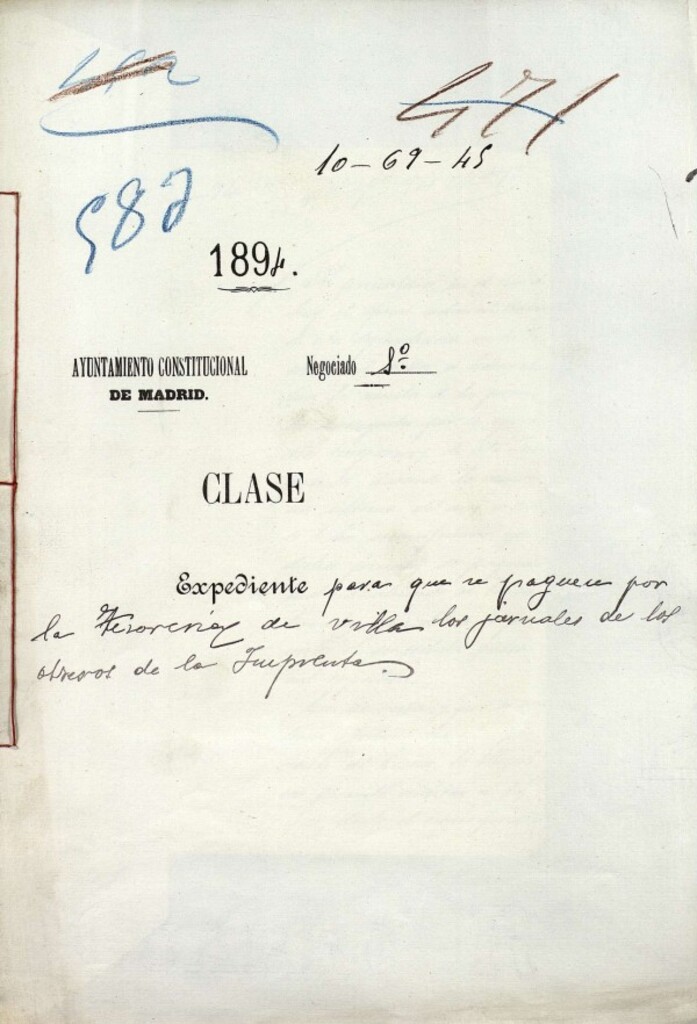 471
10-69-45
587
1894.
AYUNTAMIENTO CONSTITUCIONAL Negociado
DE MADRID.
CLASE
Expediente para que se paguen por
la Tesorería de villa los jornales de los
obreros de la Imprenta